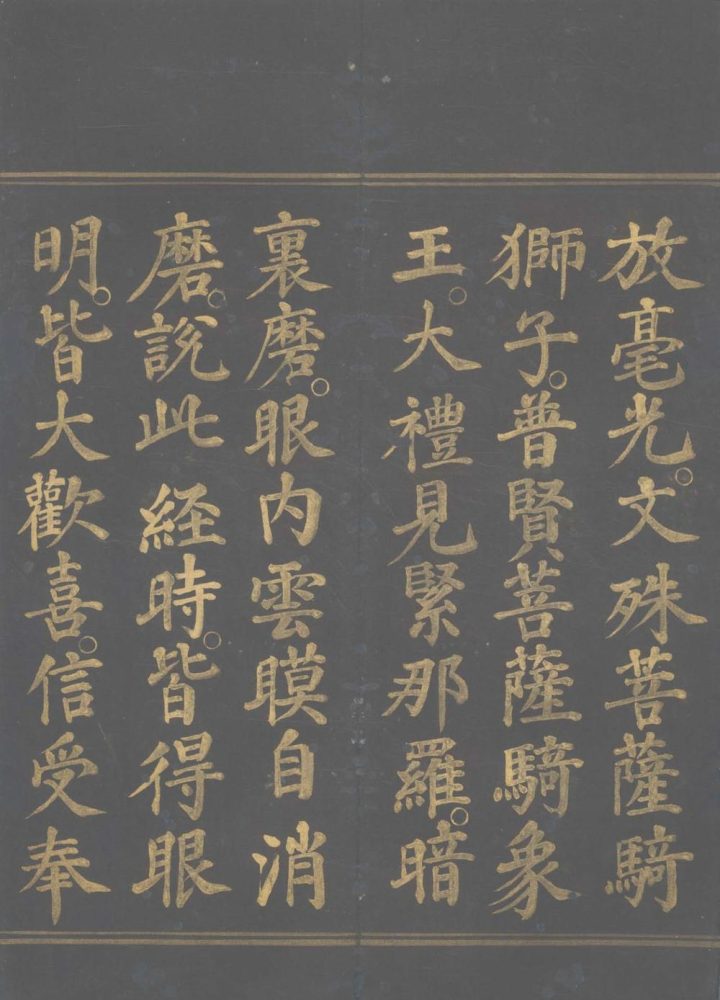 放毫光。文殊菩薩騎
獅子。普賢菩薩騎象
王。大禮見緊那羅。暗
裏磨。眼内雲瞙自消
磨。說此経時。皆得眼
明。皆大歡喜。信受奉